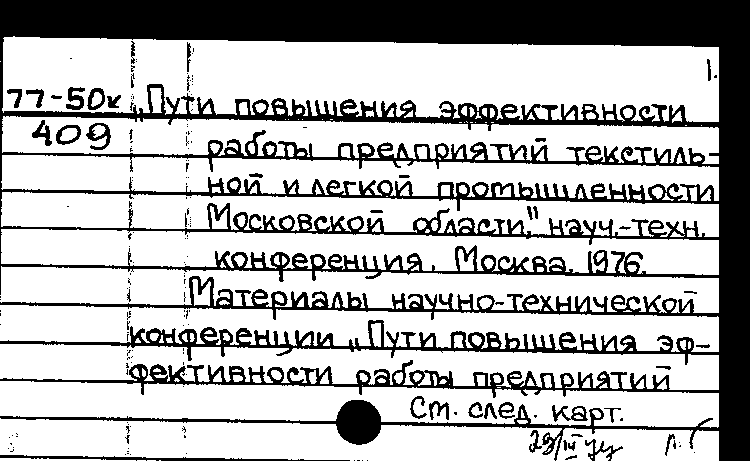 1.
77-50к „Пути повышения эффективности
409 работы предприятий текстиль-
ной и легкой промышленности
Московской области," науч.-техн.
конференция. Москва. 1976.
Материалы научно-технической
конференции „Пути повышения эф-
фективности работы предприятий
Ст. след. карт.